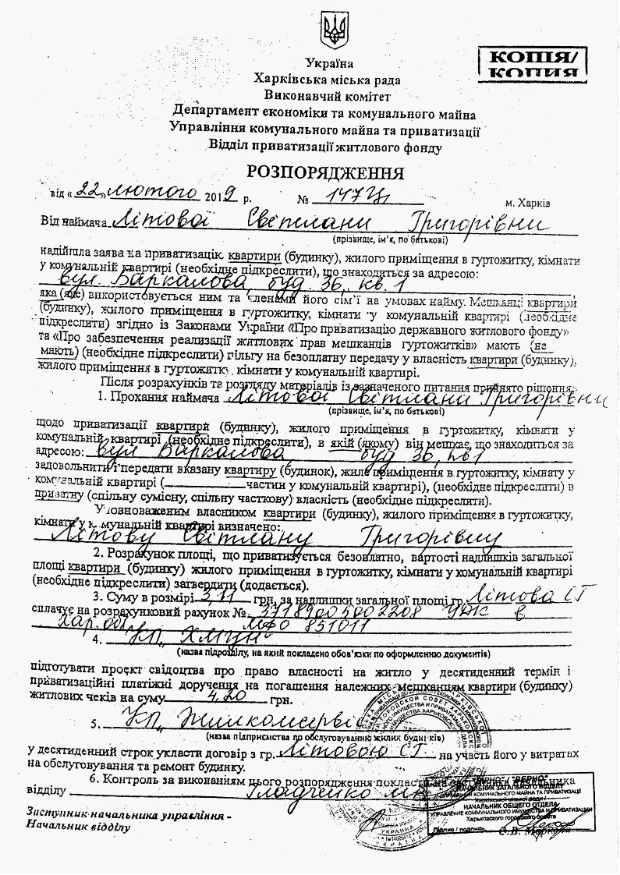 КОПІЯ/
КОПИЯ
Україна
Харківська міська рада
Виконавчий комітет
Департамент економіки та комунального майна
Управління комунального майна та приватизації
Відділ приватизації житлового фонду
РОЗПОРЯДЖЕННЯ
від « 22 » лютого 2019 р. № м. Харків
Від наймача Літової Світлани Григорівни
(прізвище, ім'я, по батькові)
надійшла заява на приватизацію квартири (будинку), жилого приміщення в гуртожитку, кімнати
у комунальній квартирі (необхідне підкреслити), що знаходиться за адресою:
вул. Баркалова буд. 36, кв. 1
яка (яке) використовується ним та членами його сім'ї на умовах найму. Мешканці квартири
(будинку), жилого приміщення в гуртожитку, кімнати у комунальній квартирі (необхідне
підкреслити) згідно із Законами України «Про приватизацію державного житлового фонду»
та «Про забезпечення реалізації житлових прав мешканців гуртожитків» мають (не
мають) (необхідне підкреслити) пільгу на безоплатну передачу у власність квартири (будинку),
жилого приміщення в гуртожитку, кімнати у комунальній квартирі.
Після розрахунків та розгляду матеріалів із зазначеного питання прийнято рішення:
1. Прохання наймача Літової Світлани Григорівни
(прізвище, ім'я, по батькові)
щодо приватизації квартири (будинку), жилого приміщення в гуртожитку, кімнати у
комунальній квартирі (необхідне підкреслити), в якій (якому) він мешкає, що знаходиться за
адресою: вул Баркалова буд 36,
задовольнити і передати вказану квартиру (будинок), жиле приміщення в гуртожитку, кімнату у
комунальній квартирі ( частин у комунальній квартирі), (необхідне підкреслити) в
приватну (спільну сумісну, спільну часткову) власність (необхідне підкреслити).
Уповноваженим власником квартири (будинку), жилого приміщення в гуртожитку,
кімнати у комунальній квартирі визначено:
Літову Світлану Григорівну
2. Розрахунок площі, що приватизується безоплатно, вартості надлишків загальної
площі квартири (будинку) жилого приміщення в гуртожитку, кімнати у комунальній квартирі
(необхідне підкреслити) затвердити (додається).
3. Суму в розмірі грн. за надлишки загальної площі гр. Літова СГ
сплачує на розрахунковий рахунок № в
МФО 851011
4. КП
(назва підрозділу, на який покладено обов'язки по оформленню документів)
підготувати проект свідоцтва про право власності на житло у десятиденний термін і
приватизаційні платіжні доручення на погашення належних мешканцям квартири (будинку)
житлових чеків на суму 4,20 грн.
5. КП Жилкомсервіс
(назва підприємства по обслуговуванню жилих будинків)
у десятиденний строк укласти договір з гр. Літовою СГ на участь його у витратах
на обслуговування та ремонт будинку.
6. Контроль за виконанням цього розпорядження покласти на начальника
відділу Гладченко
Заступник начальника управління -
Начальник відділу
"ВЕРНО"
НАЧАЛЬНИК ЗАГАЛЬНОГО ВІДДІЛУ
УПРАВЛІННЯ КОМУНАЛЬНОГО МАЙНА ТА ПРИВАТИЗАЦІЇ
НАЧАЛЬНИК ОБЩЕГО ОТДЕЛА
УПРАВЛЕНИЕ КОММУНАЛЬНОГО ИМУЩЕСТВА И ПРИВАТИЗАЦИИ
Харьковского городского совета
Підпис / подпись